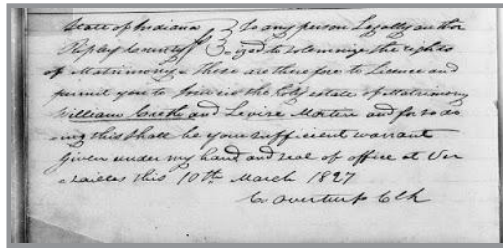 State of Indiana } To any person Legally author
Ripley County } ized to solemnize the rights
of Matrimony. These are therefore to Licence and
permit you to join in the holy estate of Matrimony
William and and for so do
ing this shall be your sufficient warrant
Given under my hand and seal of office at Ver
sailles this 10th March 1827
C Overturf Clk